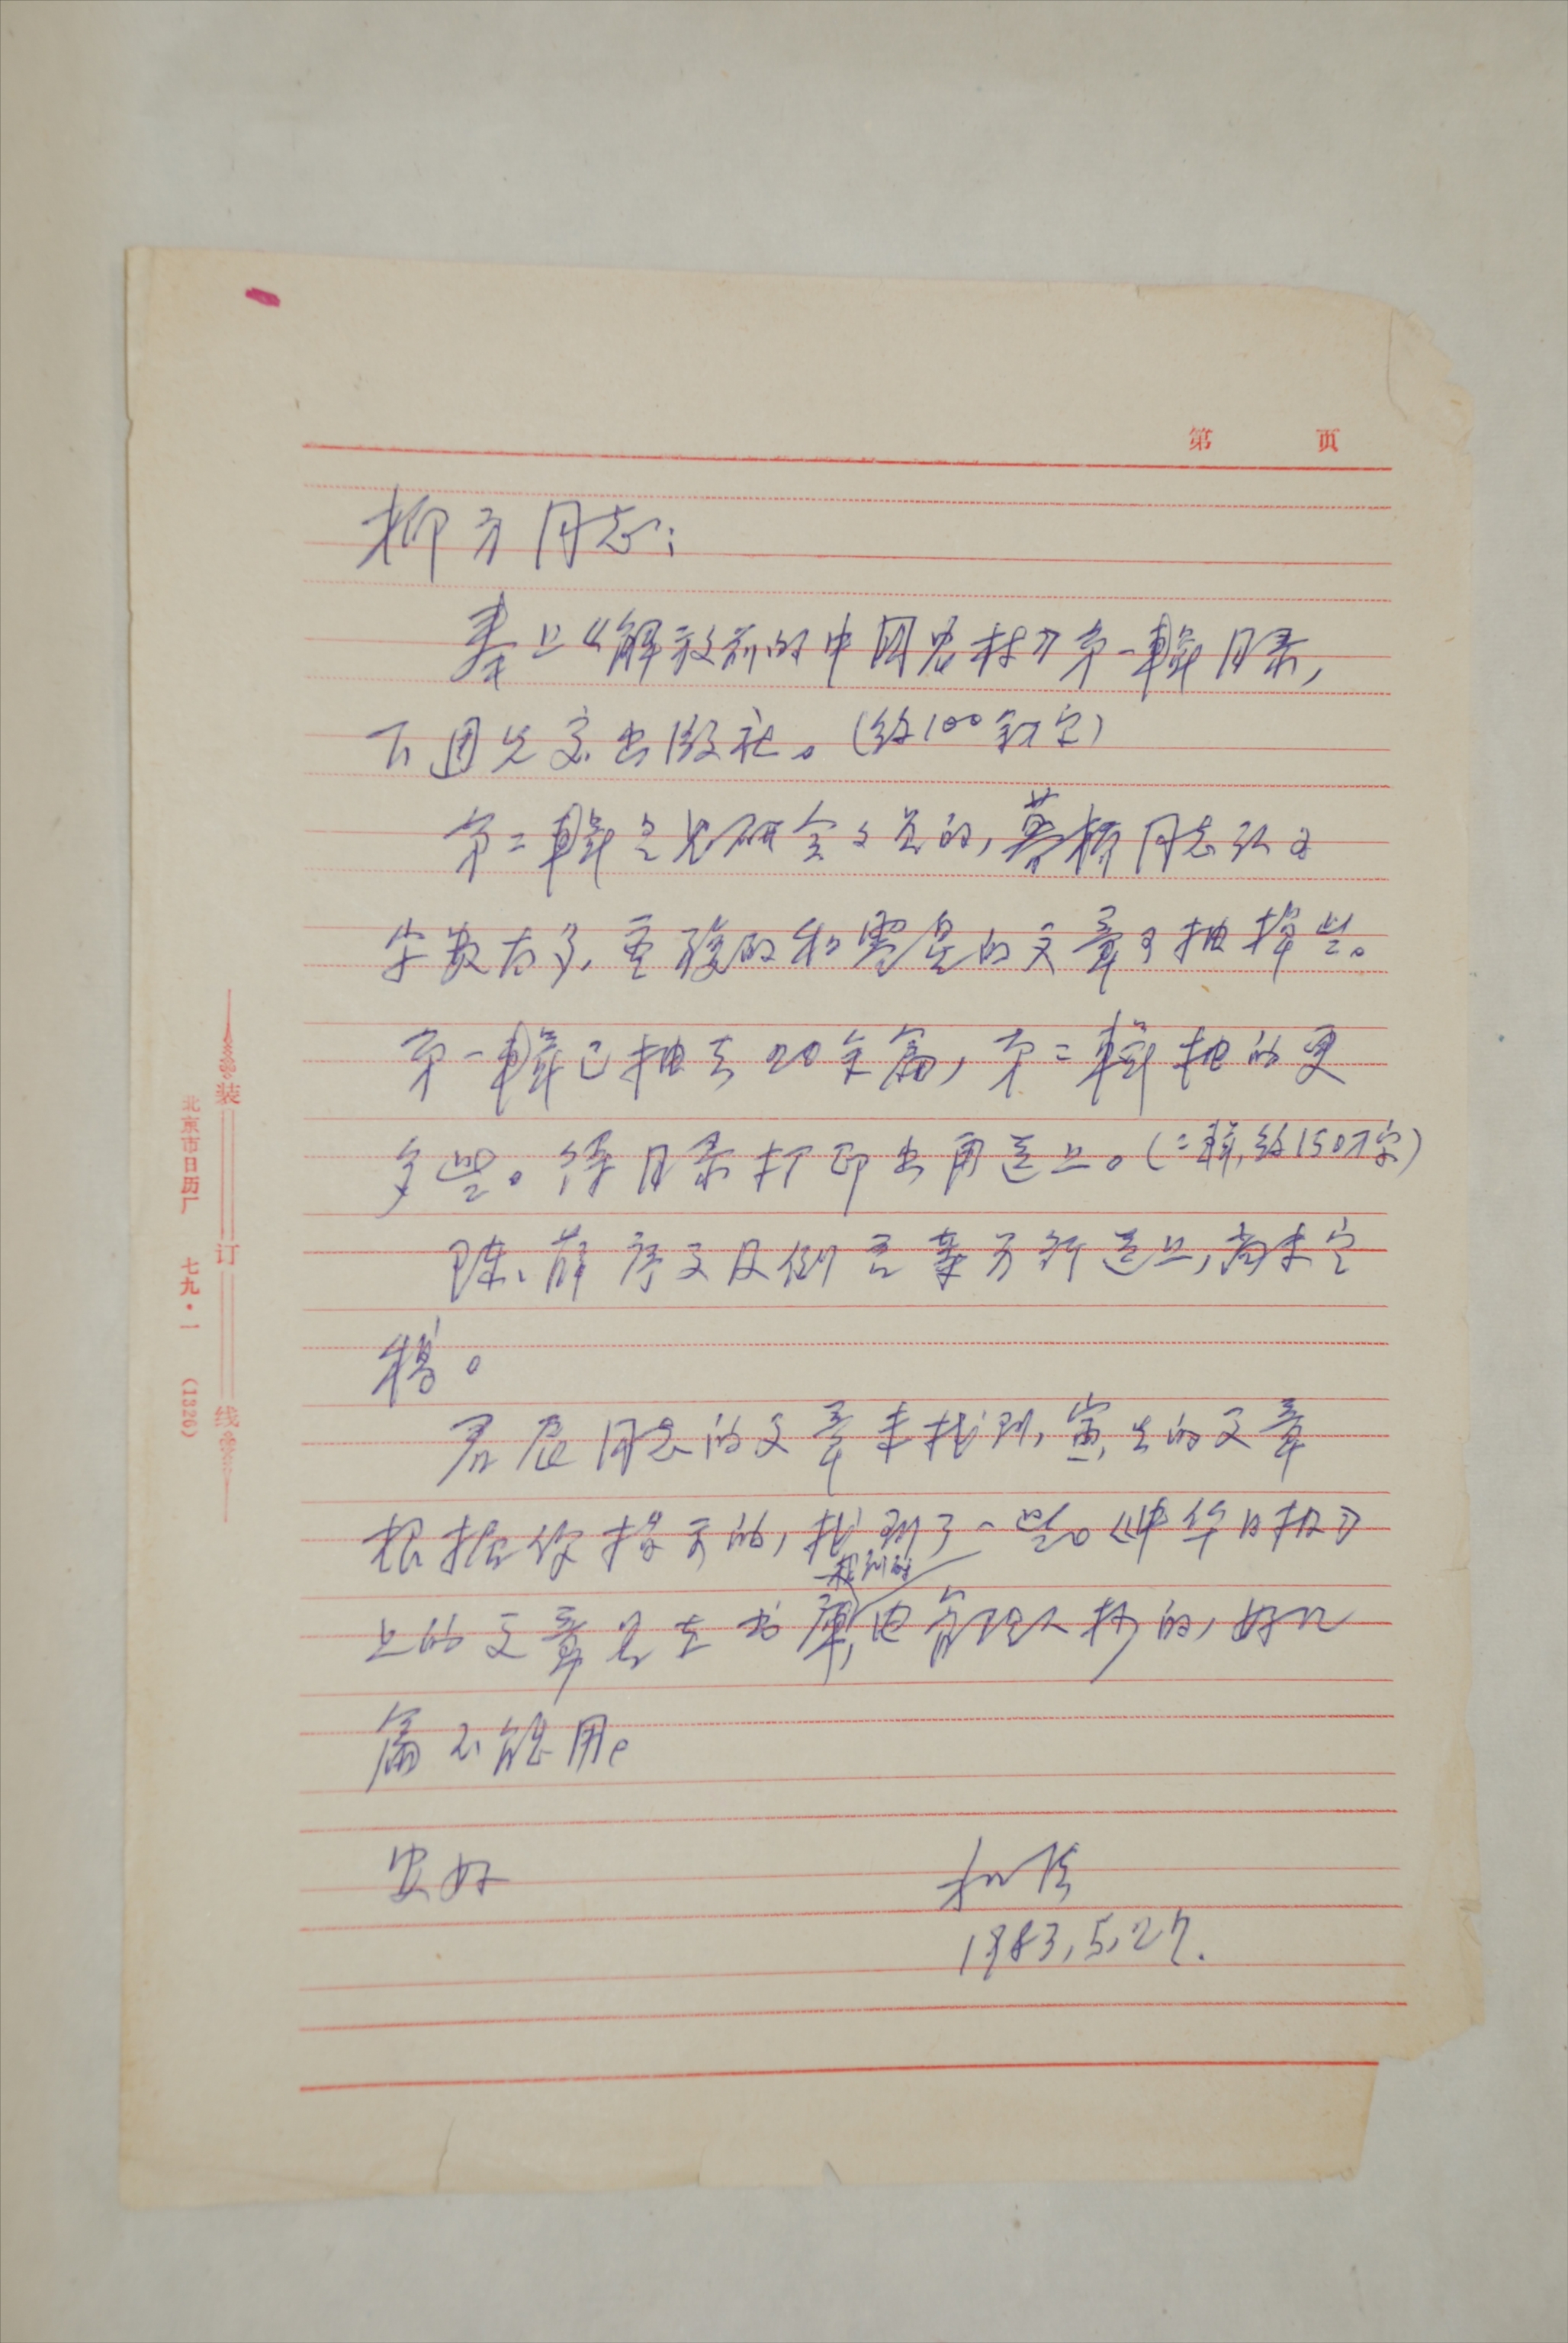 第 页
柳方同志:
奉上《解放前的中国农村》第一辑目录,
下週先交出版社。(约100万字)
第二辑是农研会文章的,慕桥同志认为
字数太多,重複的和零星的文章可抽掉些。
第一辑已抽去20余篇,第二辑抽的更
多些。待目录打印出再送上。(二辑,约150万字)
陈、薛序文及例言等另行送上,尚未定
稿。
君辰同志的文章未找到,寅生的文章
根据你提示的,找到了一些。《中华日报》
找到的
上的文章是在书库,由管理人抄的,好几
篇不能用。
安好
1983,5,27.
装 订 线
北京市日历厂 七九·一 (1326)